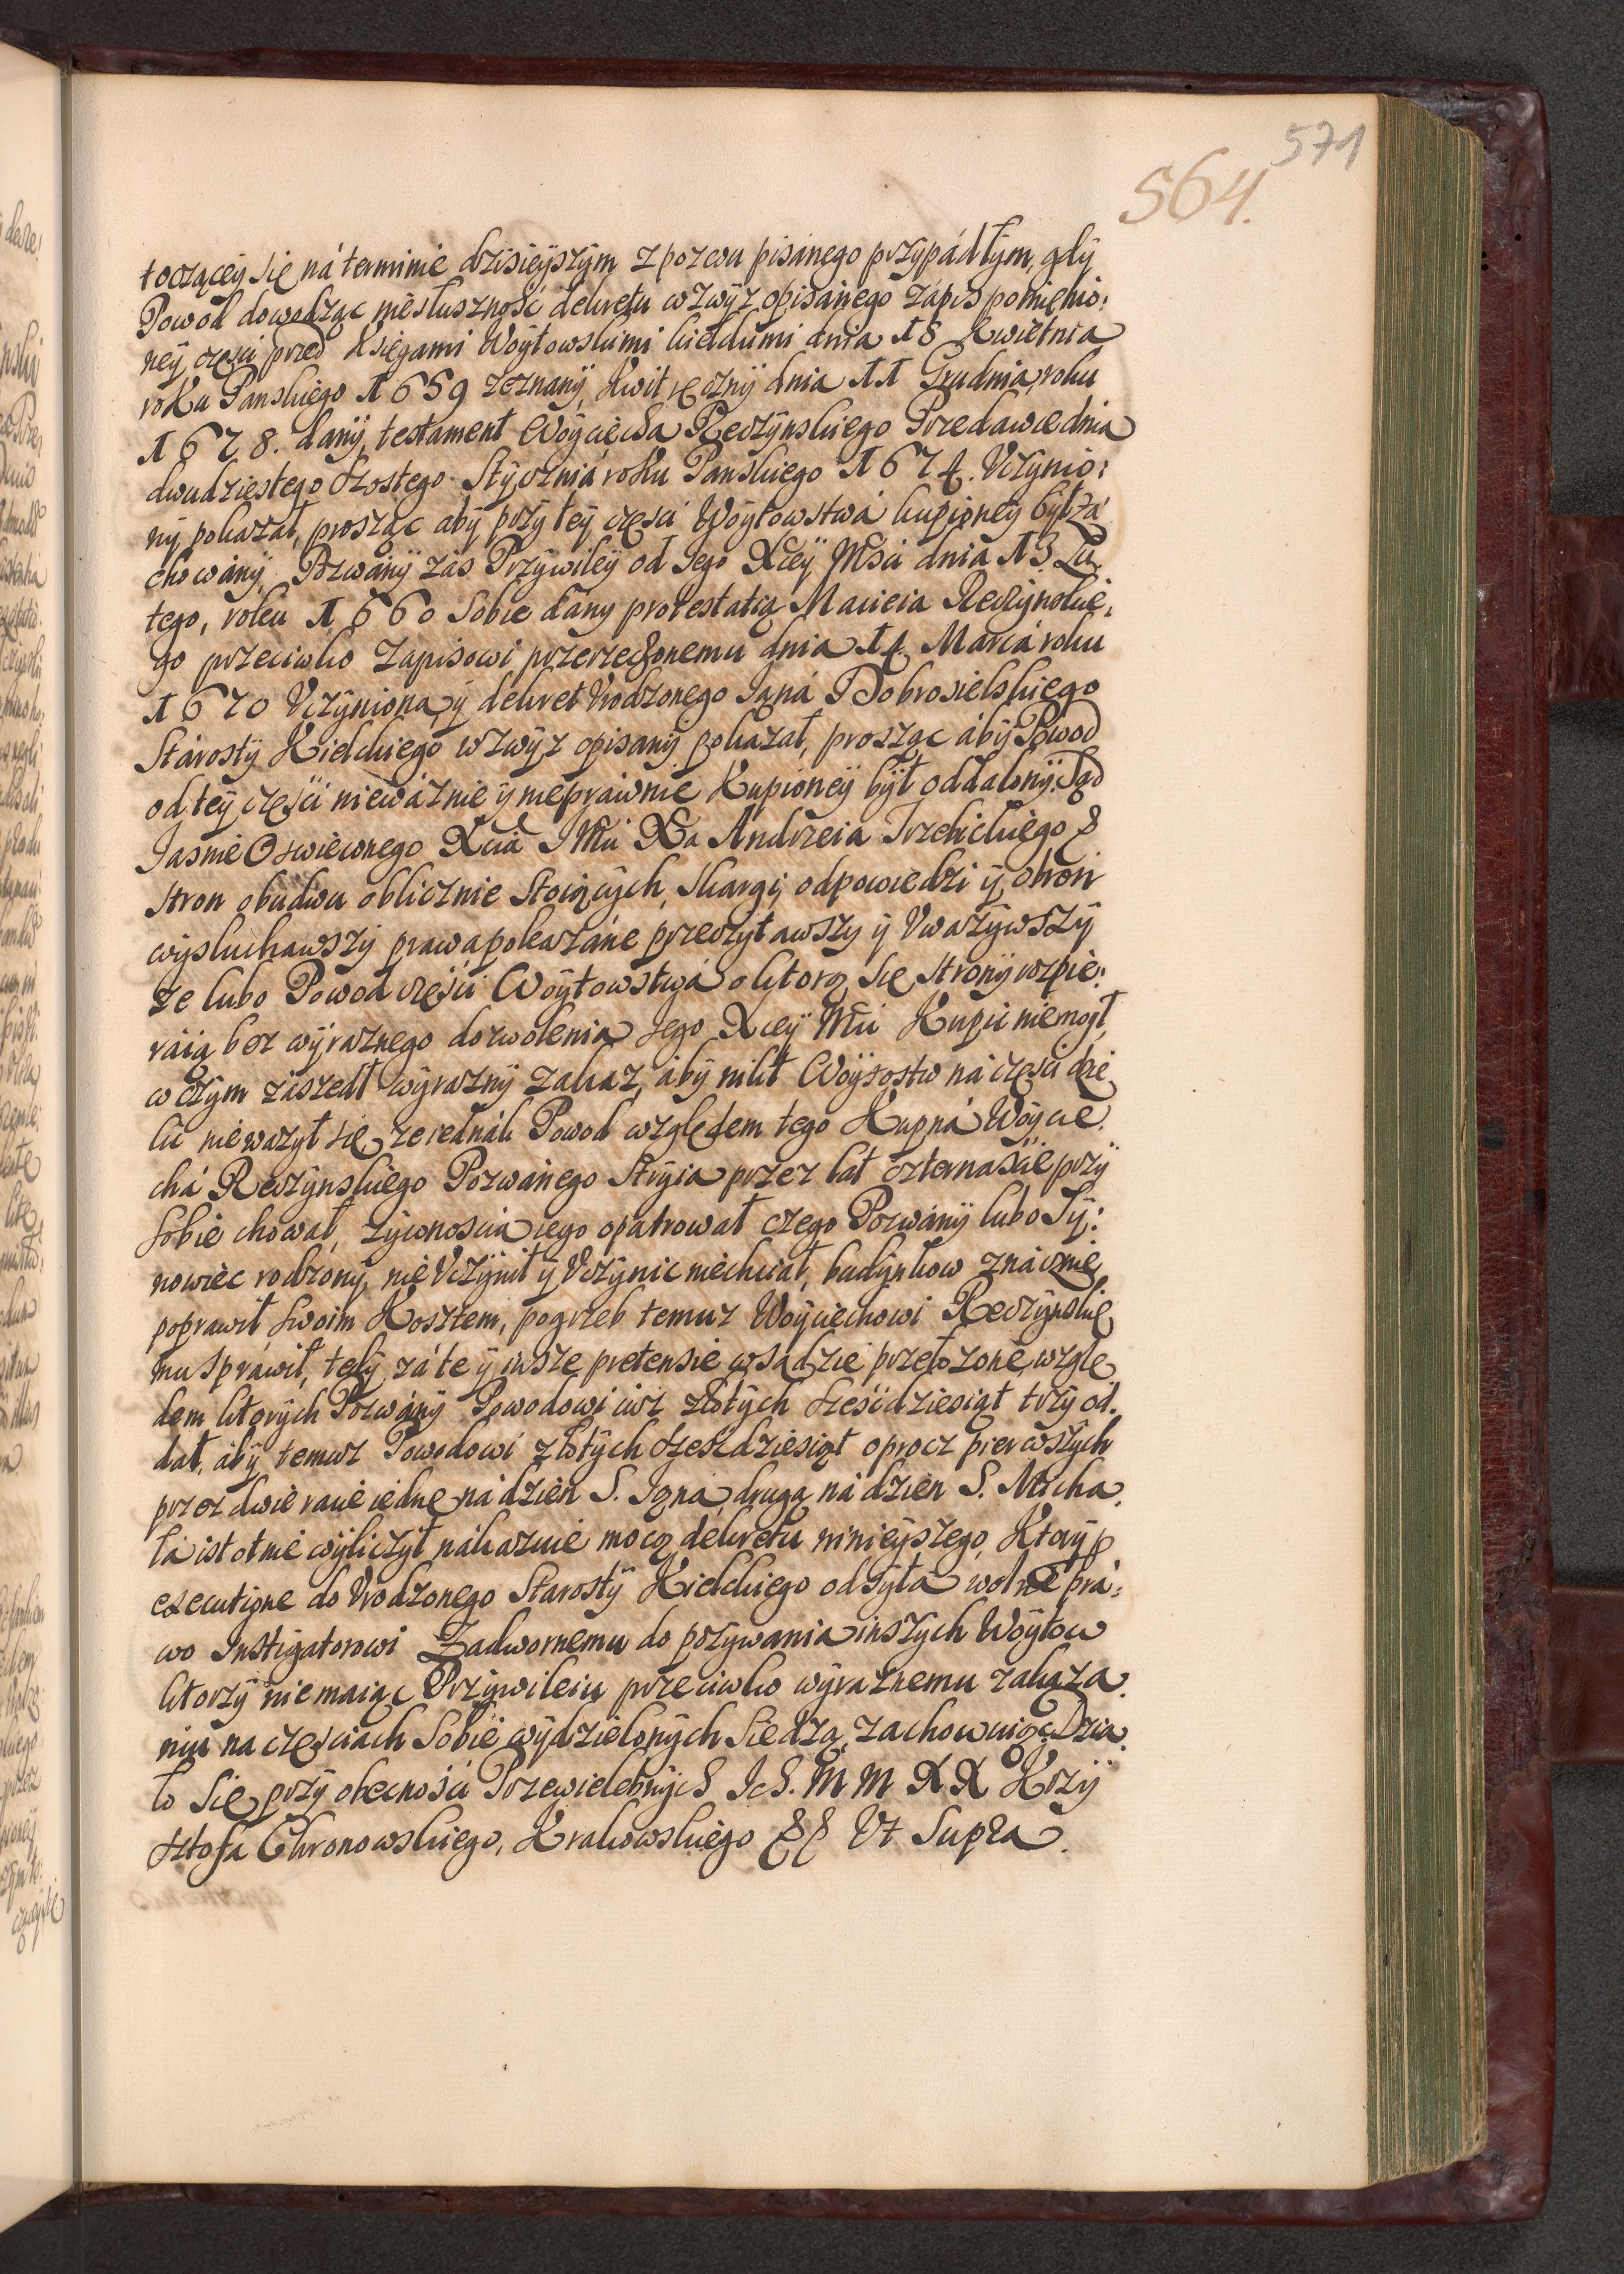 571
564.
toczącey się ná terminie dzisieyszym z pozwu pisánego przypádłym, gdy
Powod dowodząc niesłuszność dekretu wzwyż opisánego zápis pomienio:
ney części przed Xsięgami Woytowskimi kieldumi dnia 18 Kwietnia
roku Panskiego 1659 zeznany, Kwit ręczny dnia 11 Grudnia roku
1678. dany, testament Woyciecha Reczynskiego Przedawce dnia
dwudziestego szostego Stycznia roku Panskiego 1674. Vczynio:
ny pokazał, prosząc aby przy tey części Woytowstwá kupioney był zá
chowány, Pozwány zás Przywiley od Jego Xcey Mści dnia 13 Lu.
tego, roku 1660 sobie dány protestatią Macieia Reczynskie.
go przeciwko zapisowi przerzeczonemu dnia 14 Marca roku
1670 Vczyniona y dekret Vrodzonego Janá Dobrosielskiego
Stárosty Kielckiego wzwyż opisany pokazał, prosząc áby Powod
od tey części nieważnie y nieprawnie Kupioney był oddalony. Sąd
Jasnie Oswieconego Xcia JMci Xa Andrzeia Trzebickiego &
stron obudwu oblicznie Stoiących, skargi odpowiedzi y obron
wysłuchawszy prawa pokazáne przeczytawszy y Vważywszy
że lubo Powod części Woytowstwá o ktorą się strony wspie:
ráią bez wyraznego dozwolenia Jego Xcey Mci Kupić niemogł,
w czym zászedł wyrazny zakaz, áby nikt Woytostw ná części dzie
lić nieważył się, że iednák Powod względem tego Kupná Woycie.
chá Reczynskiego Pozwánego Stryia przez lat czternaście przy
sobie chował, żywnością iego opatrował czego Pozwány lubo Sy:
nowiec rodzony nie Vczynił y Vczynic niechciał, budynkow znácznie
poprawił swoim Kosztem, pogrzeb temuz Woyciechowi Reczynskie
mu spráwił, tedy zá te y insze pretensie w sądzie przełożone wzglę
dem ktorych Pozwány Powodowi iuż złotych sześćdziesiąt trzy od.
dał, áby temuz Powodowi złotych sześćdziesiąt oprocz pierwszych
przez dwie racie iedne ná dzień S. Jana drugą ná dzien S. Micha.
łá istotnie wyliczył nákazuie mocą dekretu ninieyszego, Ktory p
executione do Vrodzonego Starosty Kielckiego odsyłá wolne prá:
wo Instigatorowi Zadwornemu do pozywania inszych Woytow
ktorzy niemaiąc Przywileiu przeciwko wyraznemu zakaza.
niu na częściach sobie wydzielonych siedzą, zachowuiąc. Dzia.
ło się przy obecności Przewielebnych Ich. M M X X Krzy
sztofa Chronowskiego, Krakowskiego && Vt Supra.